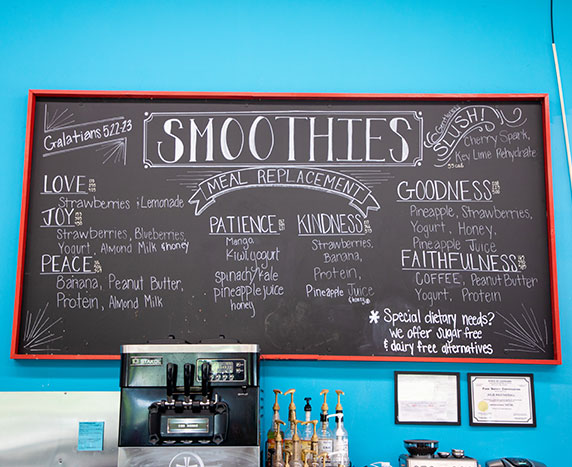 Galatians 5:22-23
SMOOTHIES
MEAL REPLACEMENT
SLUSH!
Cherry Spark,
Key Lime Rehydrate
LOVE
Strawberries & Lemonade
JOY
Strawberries, Blueberries,
Yogurt, Almond Milk & honey
PEACE
Banana, Peanut Butter,
Protein, Almond Milk
PATIENCE
Mango,
Kiwi, yogurt
spinach/kale
pineapple juice
honey
KINDNESS
Strawberries,
Banana,
Protein,
Pineapple Juice
GOODNESS
Pineapple, Strawberries,
Yogurt, Honey,
Pineapple Juice
FAITHFULNESS
COFFEE, Peanut Butter
Yogurt, Protein
* Special dietary needs?
we offer sugar free
& dairy free alternatives
STAKOL